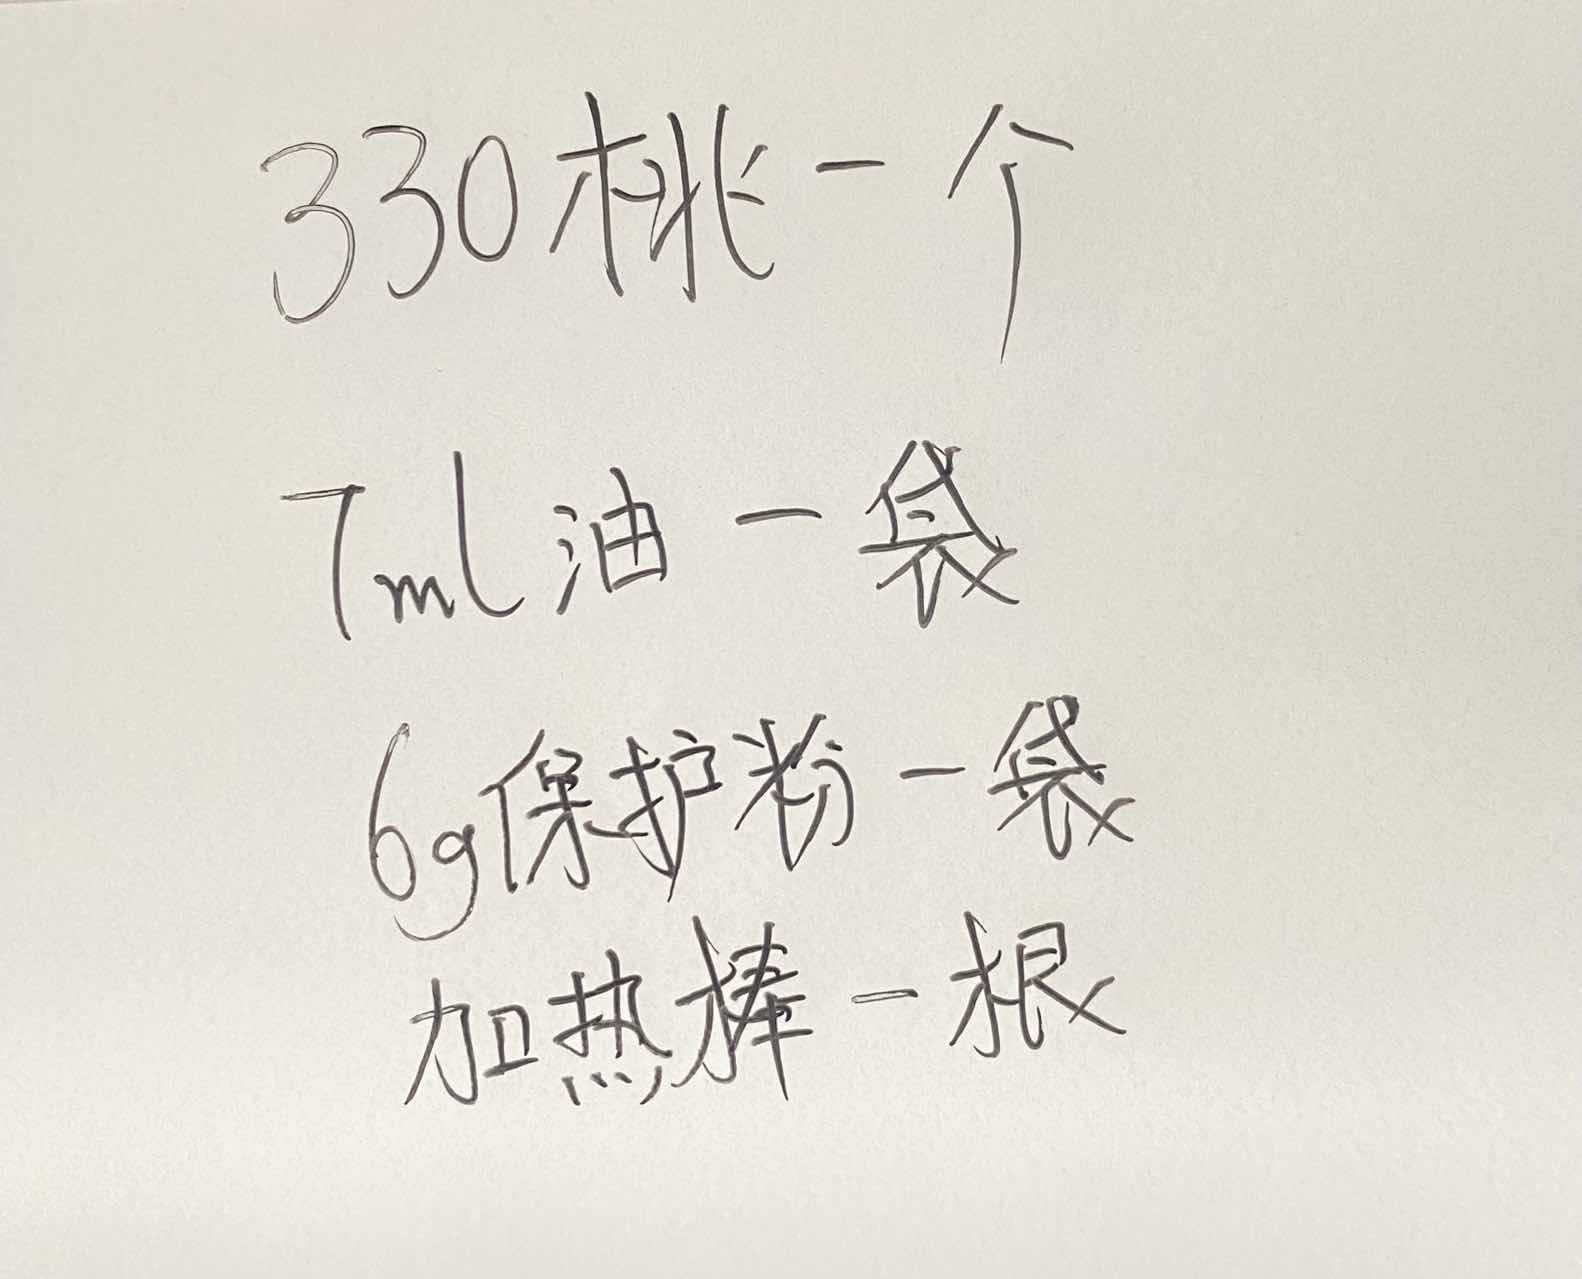 330桃一个
7ml油一袋
6g保护粉一袋
加热棒一根